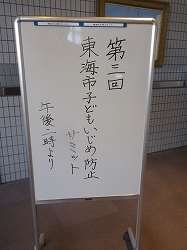 第三回
東海市子どもいじめ防止
サミット
午後二時より